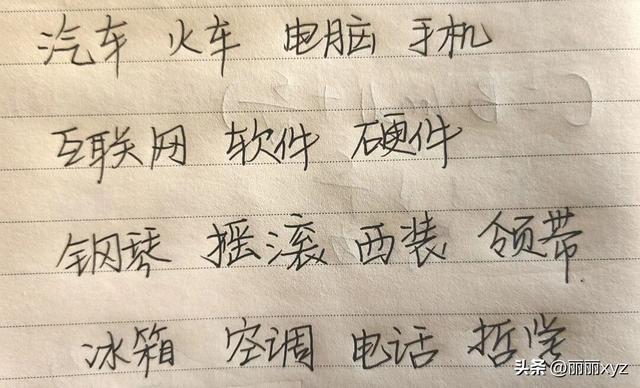 汽车 火车 电脑 手机
互联网 软件 硬件
钢琴 摇滚 西装 领带
冰箱 空调 电话 哲学
头条 @丽丽xyz